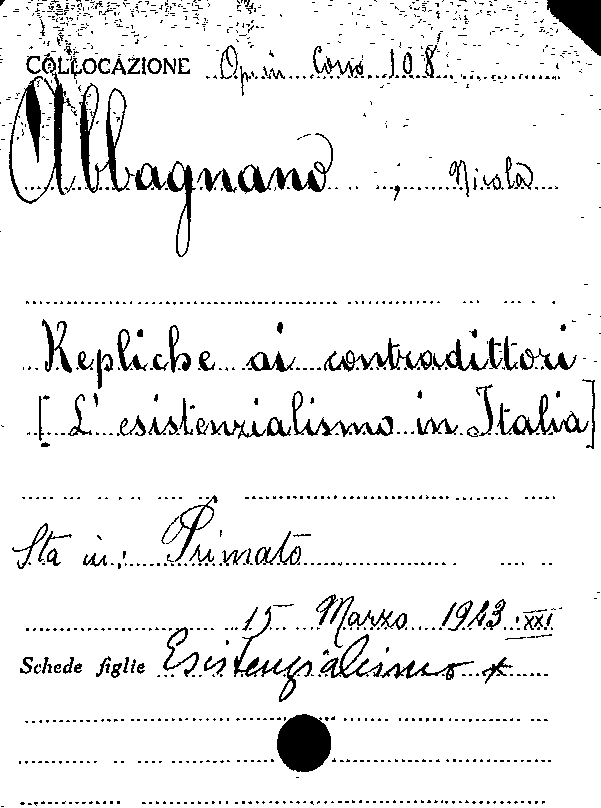 COLLOCAZIONE Op. in Cons 108
Abbagnano, Nicola
Repliche ai contradittori
[L'esistenzialismo in Italia]
Sta in: Primato
15 Marzo 1943 XXI
Schede figlie Esistenzialismo +